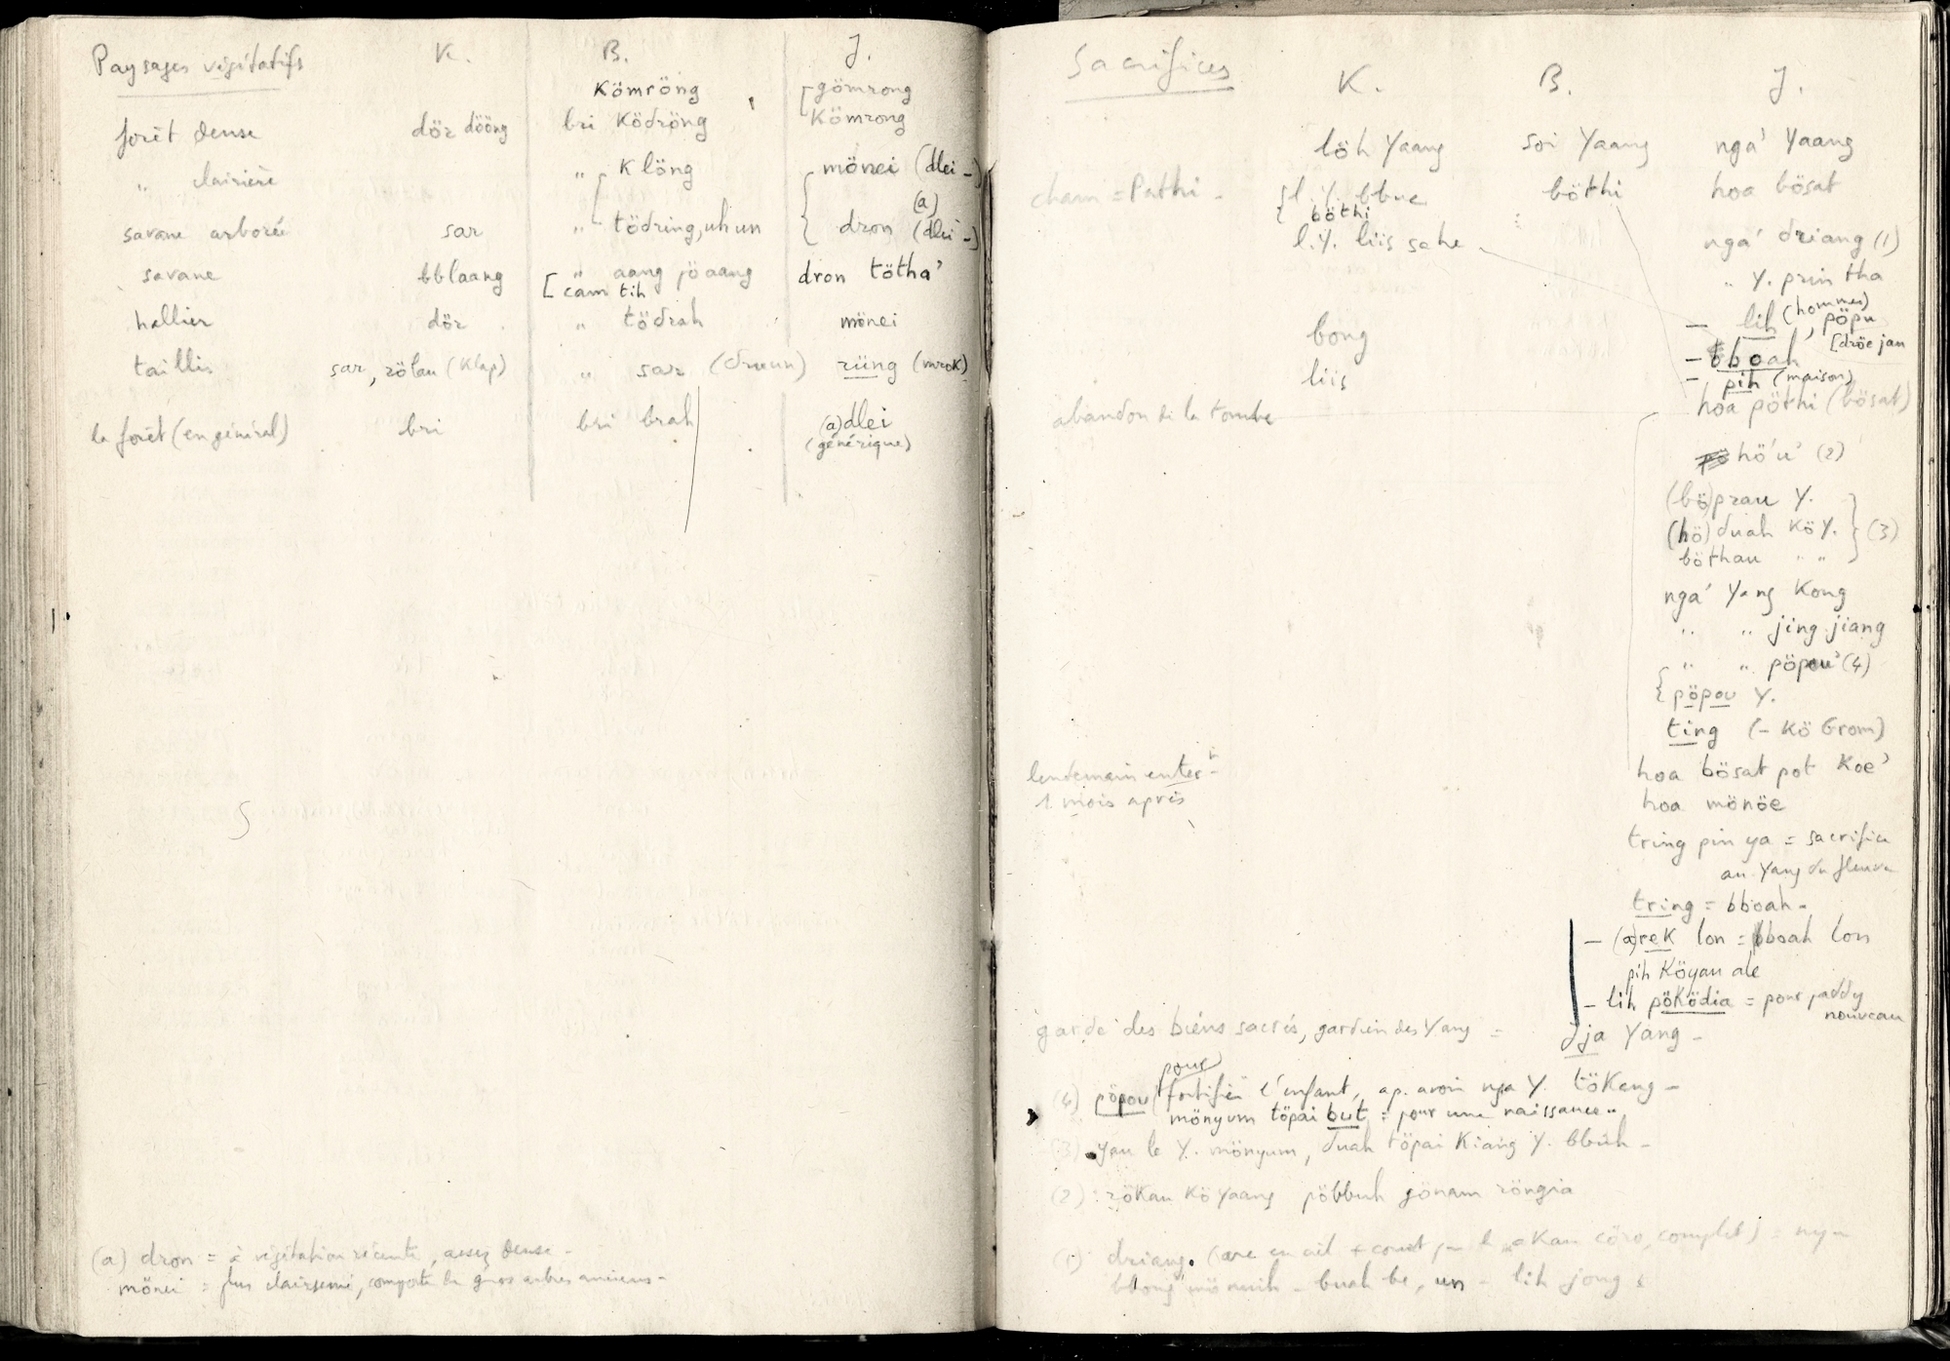 Paysages végétatifs K. B. J.
Kömröng [gömrong
forêt dense dör dööng bri Ködröng Kömrong
" clairière " Klöng mönei (dlei -)
(a)
savane arborée sar " tödring, uhun dron (dlei -)
savane bblaang " aang jö aang dron tötha'
[cam tih
hallier dör " tödrah mönei
taillis sar, rölau (Klap) " sar rüng (mrok)
la forêt (en général) bri bri brah (a)dlei
(générique)
(a) dron = à végétation récente, assez dense -
mönei = plus clairsemé, comporte de gros arbres anciens -
Sacrifices K. B. J.
löh Yaang soi Yaang nga' Yaang
cham = Pathi - {l. Y. bbue böthi hoa bösat
böthi
l. Y. liis sehe nga' driang (1)
" Y. prin tha
- lih (hommes), pöpu
bong [dröe jan
- bboah
liis - pih (maison)
abandon de la tombe hoa pöthi (bösat)
hö'u' (2)
(bö)prau Y.
(hö) duah Kö Y. } (3)
böthau " "
nga' Yang Kong
" " jing jiang
" " pöpou' (4)
{ pöpou Y.
ting (- Kö Grom)
lendemain enter-t hoa bösat pot Koe'
1 mois après hoa mönöe
tring pin ya = sacrifice
au Yang du fleuve
tring = bboah -
- (a)rek lon = bboah lon
pih Köyau ale
- lih pöKödia = pour paddy
nouveau
garde des biens sacrés, gardien des Yang = Jja Yang -
pour
(4) pöpou fortifier l'enfant, ap. avoir nga Y. töKeng -
mönyum töpai but = pour une naissance -
(3) Yau le Y. mönyum, duah töpai Kiang Y. bbuh -
(2) : röKau Kö Yaang pöbbuh gönam röngia
(1) driang.
buah be, un - lih jong